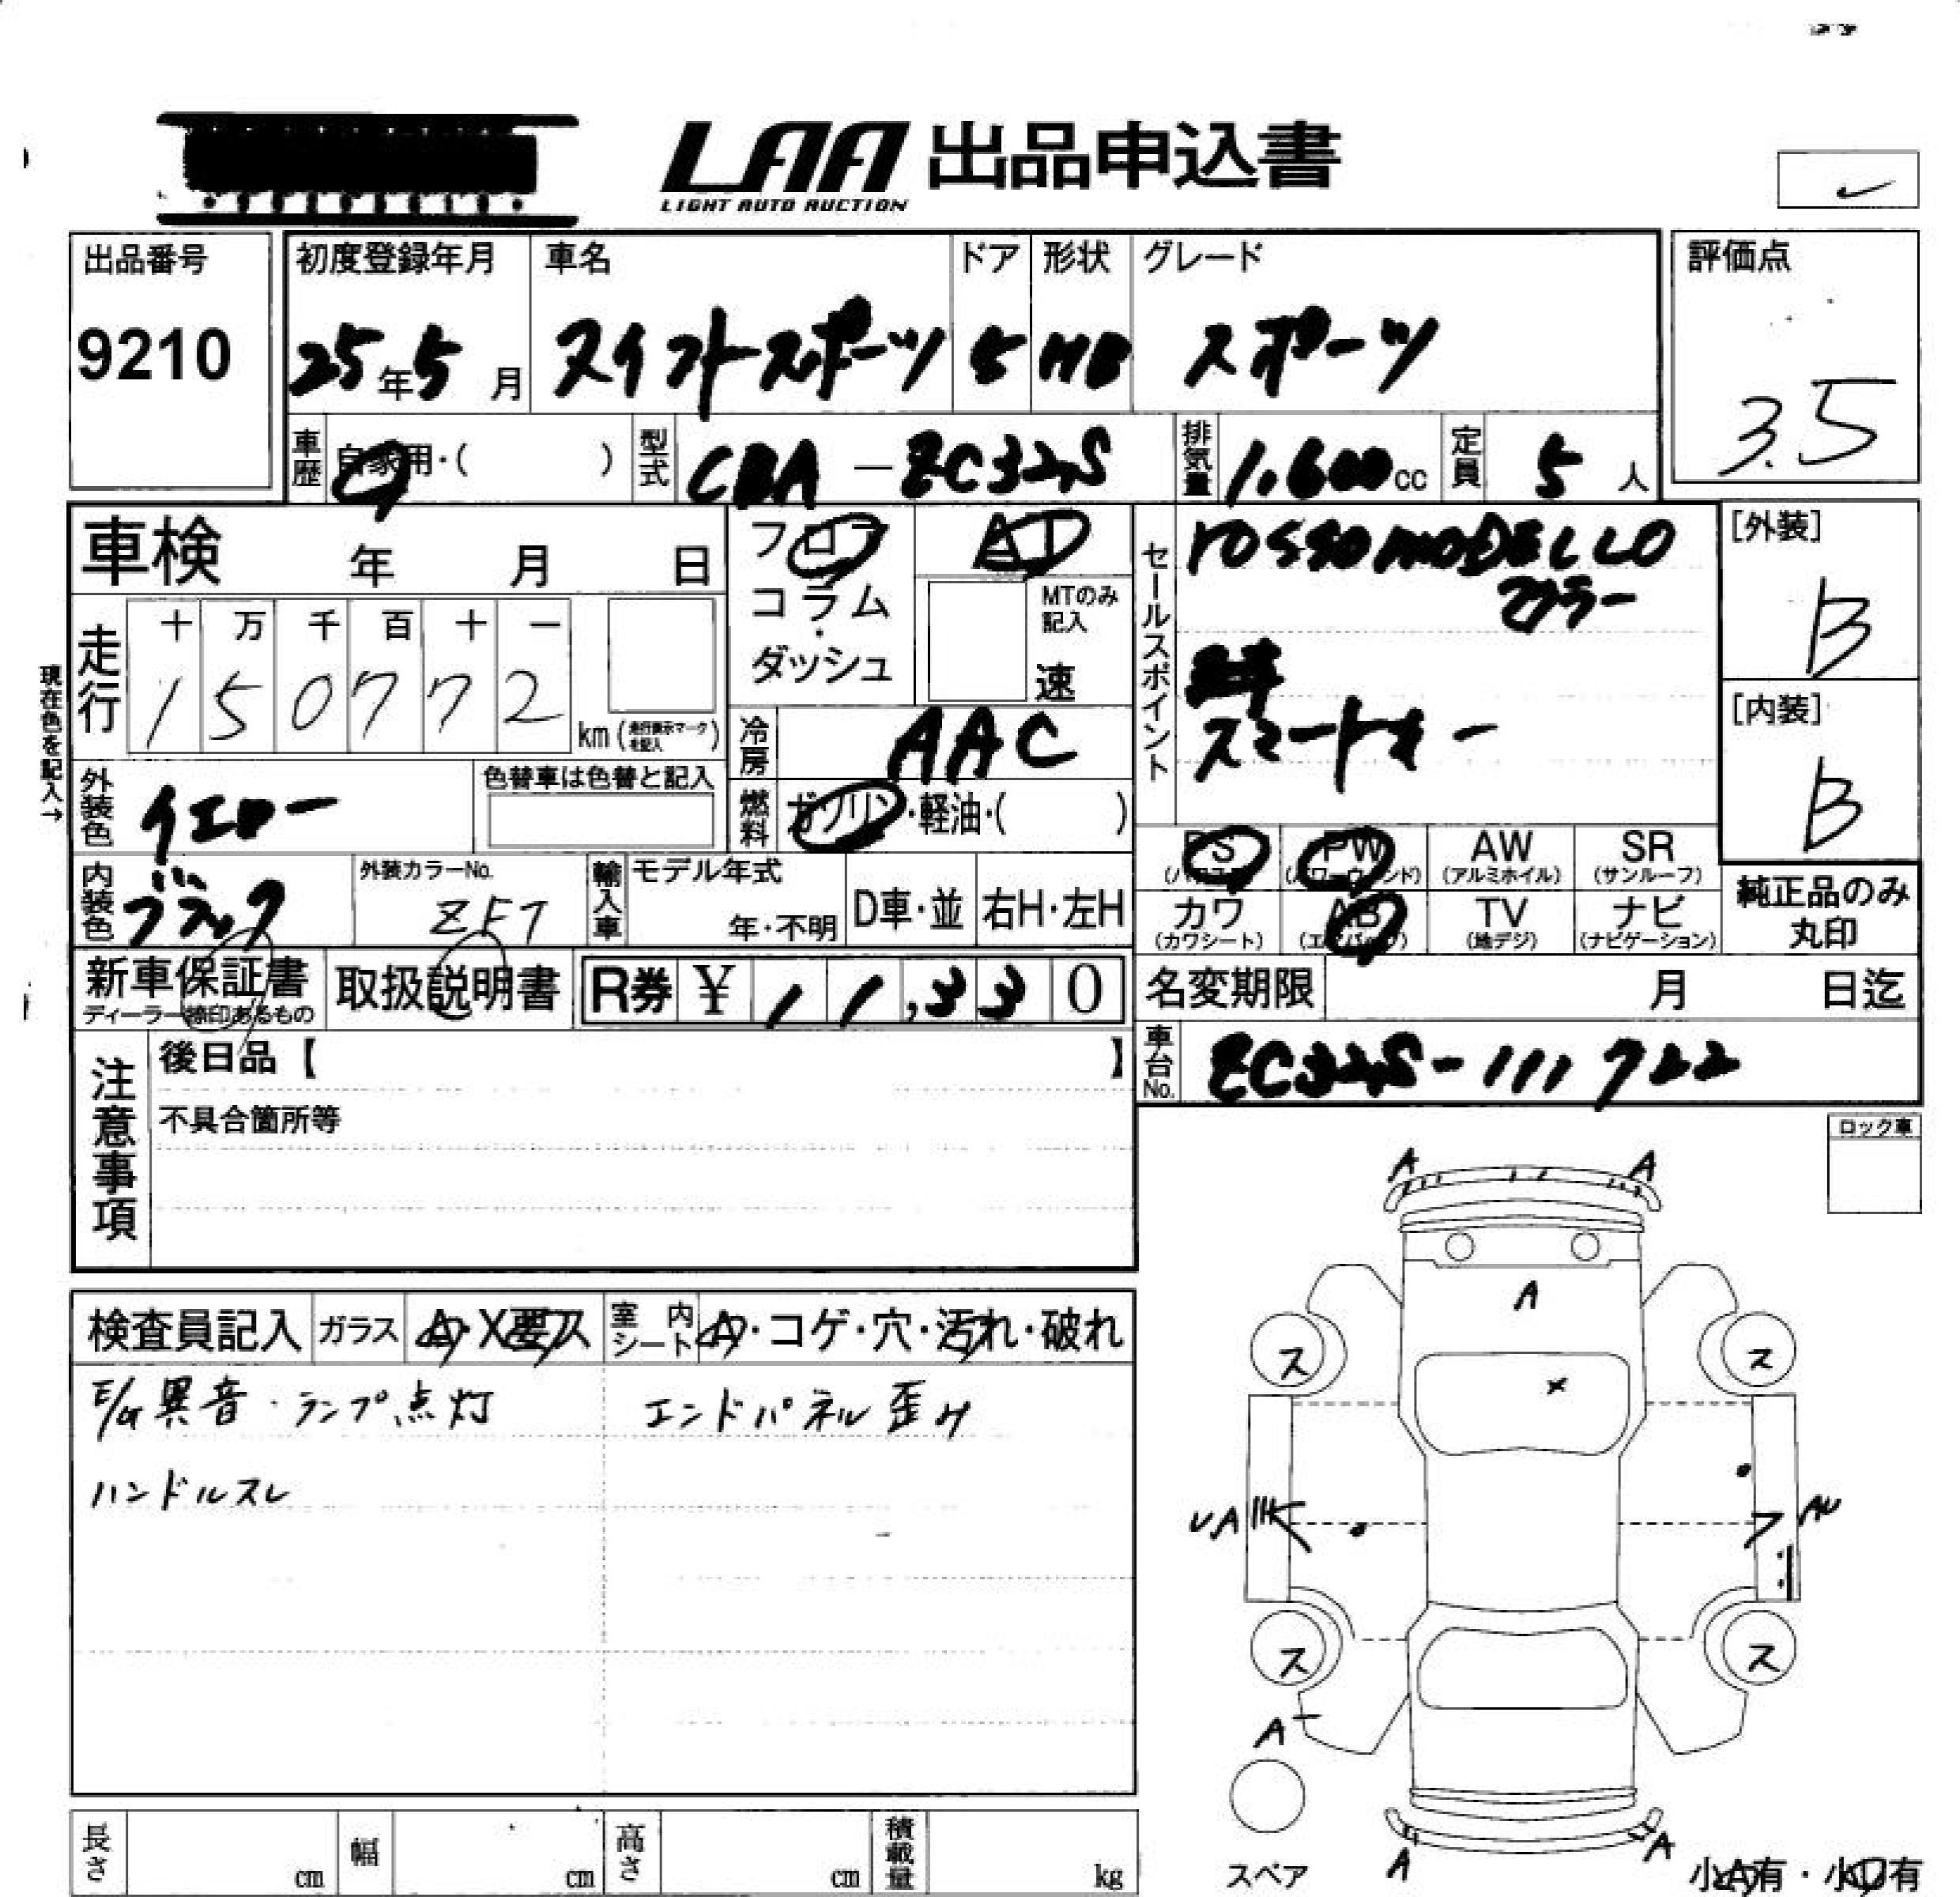 LAA 出品申込書
LIGHT AUTO AUCTION
出品番号
9210
初度登録年月
25年5月
車名
スイフトスポーツ
ドア
5
形状
HB
グレード
スポーツ
評価点
3.5
車歴
自家用・( )
型式
CBA-ZC32S
排気量
1,600cc
定員
5人
車検 年 月 日
フロア
コラム
・
ダッシュ
AT
MTのみ記入
速
セールスポイント
rosso MODELLO
マフラー
スマートキー
[外装]
B
[内装]
B
現在色を記入→
走行
十 万 千 百 十 一
1 5 0 7 7 2
km (走行表示マークを記入)
冷房
AAC
外装色
イエロー
色替車は色替と記入
燃料
ガソリン・軽油・( )
PS
PW
AW
(アルミホイル)
SR
(サンルーフ)
カワ
(カワシート)
AB
(エアバッグ)
TV
(地デジ)
ナビ
(ナビゲーション)
純正品のみ
丸印
内装色
ブラック
外装カラーNo.
ZFT
輸入車
モデル年式
年・不明
D車・並
右H・左H
新車保証書
ディーラー捺印あるもの
取扱説明書
R券 ¥ 11,330
名変期限 月 日迄
車台No.
ZC32S-111722
注意事項
後日品【 】
不具合箇所等
ロック車
検査員記入
ガラス
A・X要ス
室内シート
A・コゲ・穴・汚れ・破れ
E/G異音・ランプ点灯
エンドパネル歪み
ハンドルスレ
A A
A
ス ス
×
UA
AU
ス ス
A
A A
スペア
小A有・小U有
長さ cm
幅 cm
高さ cm
積載量 kg